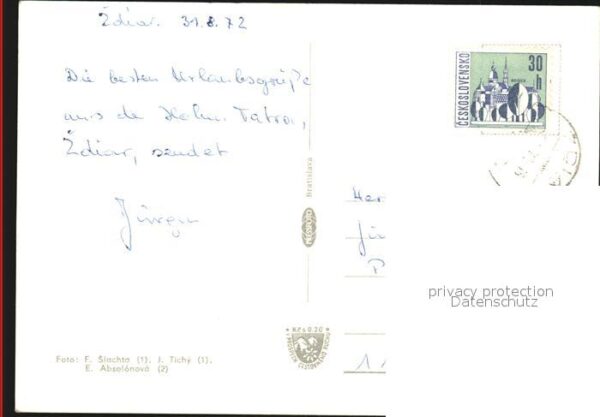 Ždiar. 31.8.72
Die besten Urlaubsgrüße
aus de Hohen Tatra,
Ždiar, sendet
Jürgen
ČESKOSLOVENSKO
30
h
Bratislava
PRESSFOTO
Her
Jü
P
1
privacy protection
Datenschutz
Kčs 0.20
Foto: F. Šlachta (1), J. Tichý (1),
E. Absolónová (2)